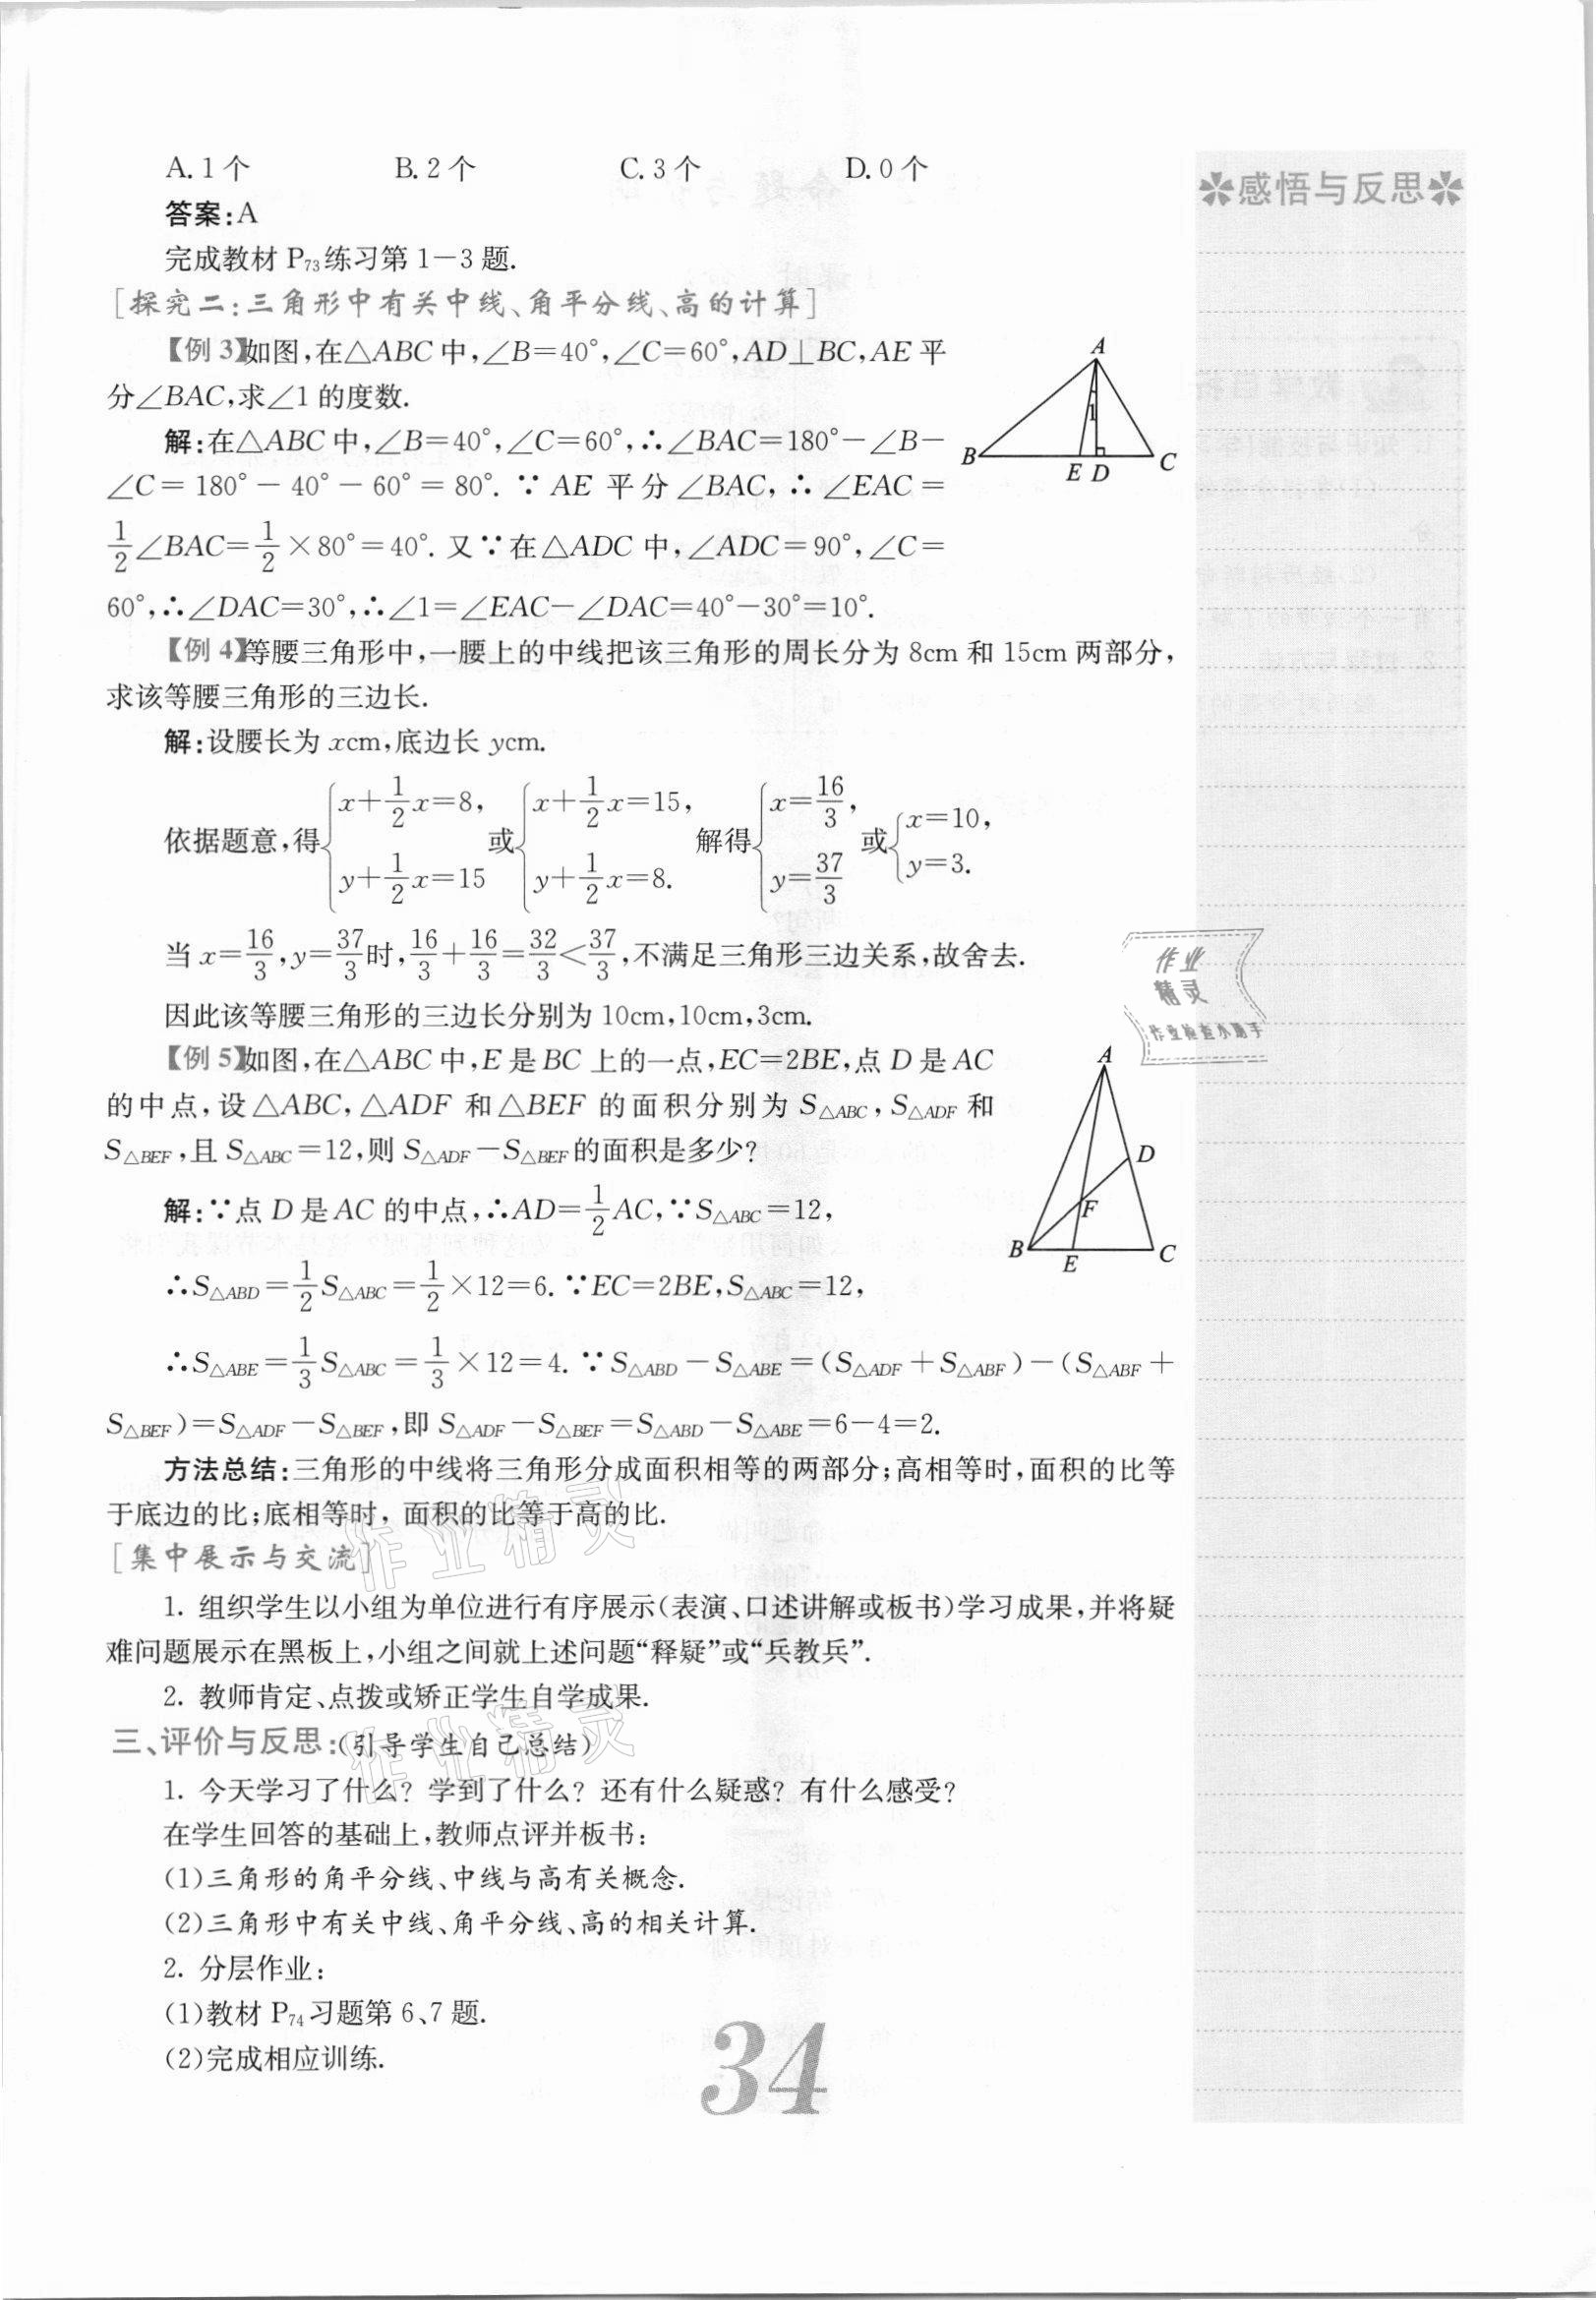 A. 1 个 B. 2 个 C. 3 个 D. 0 个
答案:A
完成教材 P₇₃练习第 1－3 题.
[探究二:三角形中有关中线、角平分线、高的计算]
【例 3】如图,在△ABC 中,∠B=40°,∠C=60°,AD⊥BC,AE 平
分∠BAC,求∠1 的度数.
解:在△ABC 中,∠B=40°,∠C=60°,∴∠BAC=180°－∠B－
∠C = 180° － 40° － 60° = 80°. ∵ AE 平分∠BAC, ∴ ∠EAC =
1/2∠BAC=1/2×80°=40°. 又∵在△ADC 中,∠ADC=90°,∠C=
60°,∴∠DAC=30°,∴∠1=∠EAC－∠DAC=40°－30°=10°.
A
1
B
E D
C
【例 4】等腰三角形中,一腰上的中线把该三角形的周长分为 8cm 和 15cm 两部分,
求该等腰三角形的三边长.
解:设腰长为 xcm,底边长 ycm.
依据题意,得{x+1/2x=8, y+1/2x=15 或{x+1/2x=15, y+1/2x=8. 解得{x=16/3, y=37/3 或{x=10, y=3.
当 x=16/3,y=37/3时,16/3+16/3=32/3<37/3,不满足三角形三边关系,故舍去.
因此该等腰三角形的三边长分别为 10cm,10cm,3cm.
【例 5】如图,在△ABC 中,E 是 BC 上的一点,EC=2BE,点 D 是 AC
的中点,设△ABC,△ADF 和△BEF 的面积分别为 S△ABC,S△ADF 和
S△BEF,且 S△ABC=12,则 S△ADF－S△BEF的面积是多少?
解:∵点 D 是 AC 的中点,∴AD=1/2AC,∵S△ABC=12,
∴S△ABD=1/2S△ABC=1/2×12=6. ∵EC=2BE,S△ABC=12,
A
D
F
B
E
C
∴S△ABE=1/3S△ABC=1/3×12=4. ∵S△ABD－S△ABE=(S△ADF+S△ABF)－(S△ABF+
S△BEF)=S△ADF－S△BEF,即 S△ADF－S△BEF=S△ABD－S△ABE=6－4=2.
方法总结:三角形的中线将三角形分成面积相等的两部分;高相等时,面积的比等
于底边的比;底相等时,面积的比等于高的比.
[集中展示与交流]
1. 组织学生以小组为单位进行有序展示(表演、口述讲解或板书)学习成果,并将疑
难问题展示在黑板上,小组之间就上述问题“释疑”或“兵教兵”.
2. 教师肯定、点拨或矫正学生自学成果.
三、评价与反思:(引导学生自己总结)
1. 今天学习了什么? 学到了什么? 还有什么疑惑? 有什么感受?
在学生回答的基础上,教师点评并板书:
(1)三角形的角平分线、中线与高有关概念.
(2)三角形中有关中线、角平分线、高的相关计算.
2. 分层作业:
(1)教材 P₇₄习题第 6、7 题.
(2)完成相应训练.
34
感悟与反思
作业
精灵
作业检查小助手
作业精灵
作业精灵